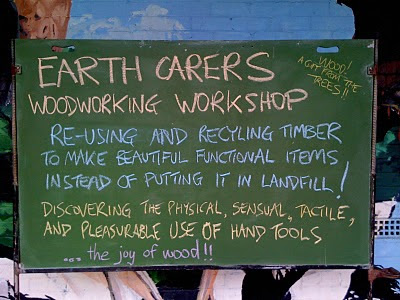 EARTH CARERS
WOODWORKING WORKSHOP
WOOD!
A GIFT
FROM THE
TREES!!
RE-USING AND RECYLING TIMBER
TO MAKE BEAUTIFUL FUNCTIONAL ITEMS
INSTEAD OF PUTTING IT IN LANDFILL!
DISCOVERING THE PHYSICAL, SENSUAL, TACTILE,
AND PLEASURABLE USE OF HAND TOOLS
... the joy of wood!!